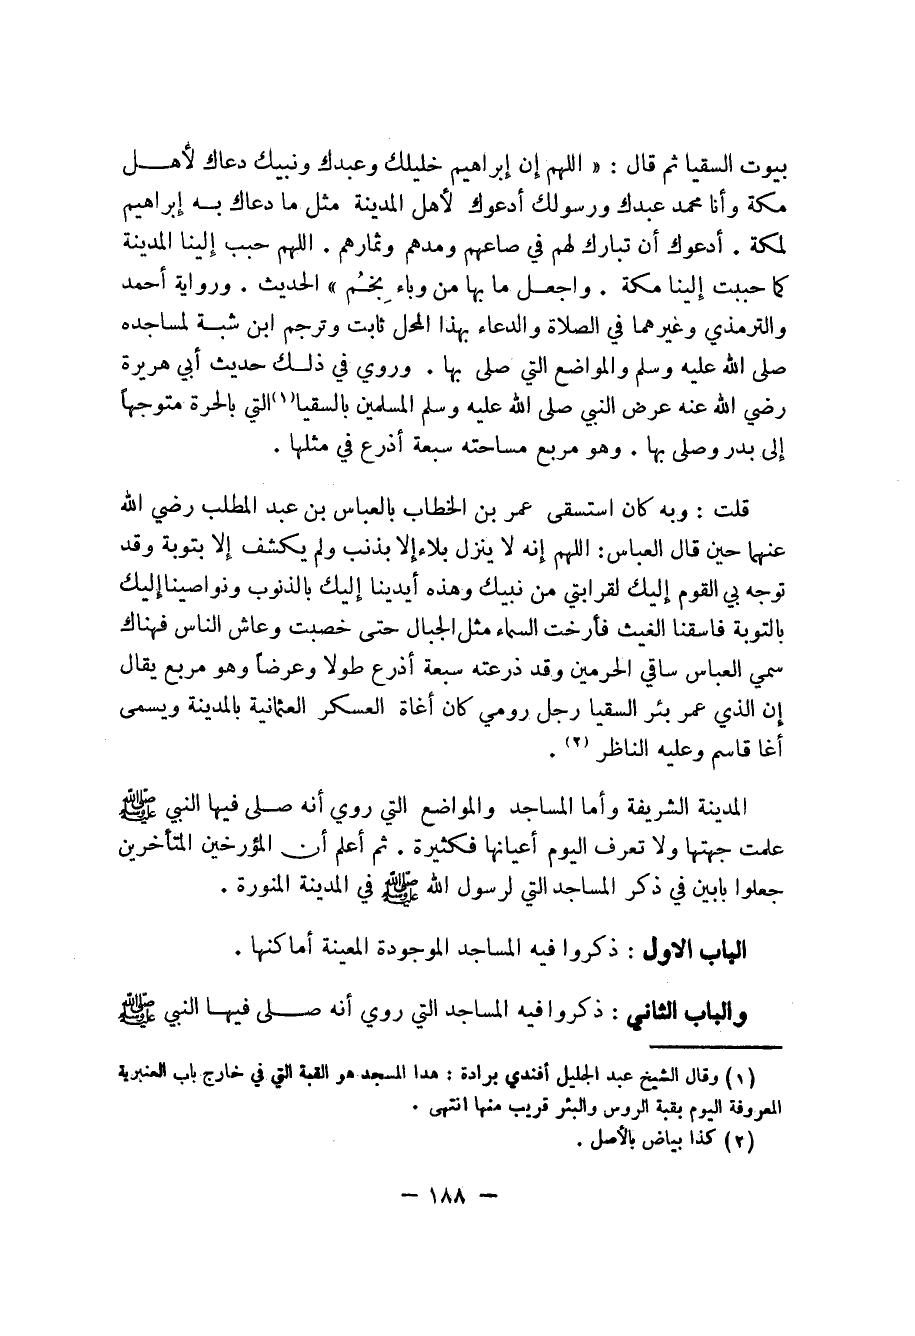 بيوت السقيا ثم قال : « اللهم إن إبراهيم خليلك وعبدك ونبيك دعاك لأهل
مكة وأنا محمد عبدك ورسولك أدعوك لأهل المدينة مثل ما دعاك به إبراهيم
لمكة . أدعوك أن تبارك لهم في صاعهم ومدهم وثمارهم . اللهم حبب إلينا المدينة
كما حببت إلينا مكة . واجعل ما بها من وباء بِخُم » الحديث . ورواية أحمد
والترمذي وغيرهما في الصلاة والدعاء بهذا المحل ثابت وترجم ابن شبة لمساجده
صلى الله عليه وسلم والمواضع التي صلى بها . وروي في ذلك حديث أبي هريرة
رضي الله عنه عرض النبي صلى الله عليه وسلم المسلمين بالسقيا(١)التي بالحرة متوجهاً
إلى بدر وصلى بها . وهو مربع مساحته سبعة أذرع في مثلها .
قلت : وبه كان استسقى عمر بن الخطاب بالعباس بن عبد المطلب رضي الله
عنهما حين قال العباس: اللهم إنه لا ينزل بلاء إلا بذنب ولم يكشف إلا بتوبة وقد
توجه بي القوم إليك لقرابتي من نبيك وهذه أيدينا إليك بالذنوب ونواصينا إليك
بالتوبة فاسقنا الغيث فأرخت السماء مثل الجبال حتى خصبت وعاش الناس فهناك
سمي العباس ساقي الحرمين وقد ذرعته سبعة أذرع طولا وعرضاً وهو مربع يقال
إن الذي عمر بئر السقيا رجل رومي كان أغاة العسكر العثمانية بالمدينة ويسمى
أغا قاسم وعليه الناظر (٢) .
المدينة الشريفة وأما المساجد والمواضع التي روي أنه صلى فيها النبي ﷺ
علمت جهتها ولا تعرف اليوم أعيانها فكثيرة . ثم أعلم أن المؤرخين المتأخرين
جعلوا بابين في ذكر المساجد التي لرسول الله ﷺ في المدينة المنورة .
الباب الاول : ذكروا فيه المساجد الموجودة المعينة أماكنها .
والباب الثاني : ذكروا فيه المساجد التي روي أنه صلى فيها النبي ﷺ
(١) وقال الشيخ عبد الجليل أفندي برادة : هدا المسجد هو القبة التي في خارج باب العنبرية
المعروفة اليوم بقبة الروس والبئر قريب منها انتهى .
(٢) كذا بياض بالأصل .
— ١٨٨ —